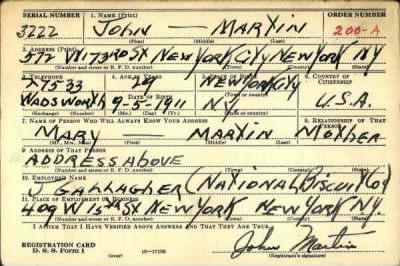 SERIAL NUMBER 1. NAME (Print) ORDER NUMBER
3222 JOHN — MARTIN 200-A
(First) (Middle) (Last)
2. ADDRESS (Print)
572 W 173rd St NEW YORK CITY NEW YORK NY
(Number and street or R. F. D. number) (Town) (County) (State)
3. TELEPHONE 4. AGE IN YEARS 5. PLACE OF BIRTH 6. COUNTRY OF CITIZENSHIP
X 7533 29 NEW YORK CITY
DATE OF BIRTH (Town or county)
WADSWORTH 9-5-1911 NY. U.S.A.
(Exchange) (Number) (Mo.) (Day) (Yr.) (State or country)
7. NAME OF PERSON WHO WILL ALWAYS KNOW YOUR ADDRESS 8. RELATIONSHIP OF THAT PERSON
MARY — MARTIN MOTHER
(Mr., Mrs., Miss) (First) (Middle) (Last)
9. ADDRESS OF THAT PERSON
ADDRESS ABOVE
(Number and street or R. F. D. number) (Town) (County) (State)
10. EMPLOYER'S NAME
J GALLAGHER (NATIONAL BISCUIT CO)
11. PLACE OF EMPLOYMENT OR BUSINESS
409 W 15th St NEW YORK NEW YORK NY.
(Number and street or R. F. D. number) (Town) (County) (State)
I AFFIRM THAT I HAVE VERIFIED ABOVE ANSWERS AND THAT THEY ARE TRUE.
REGISTRATION CARD John Martin
D. S. S. Form 1 (over) 16-17105 (Registrant's signature)